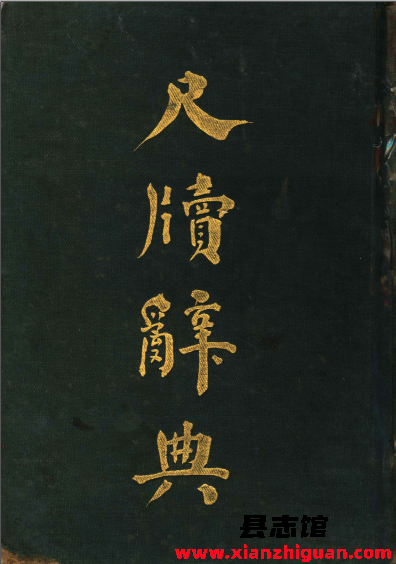 尺牘辭典
县志馆
www.xianzhiguan.com